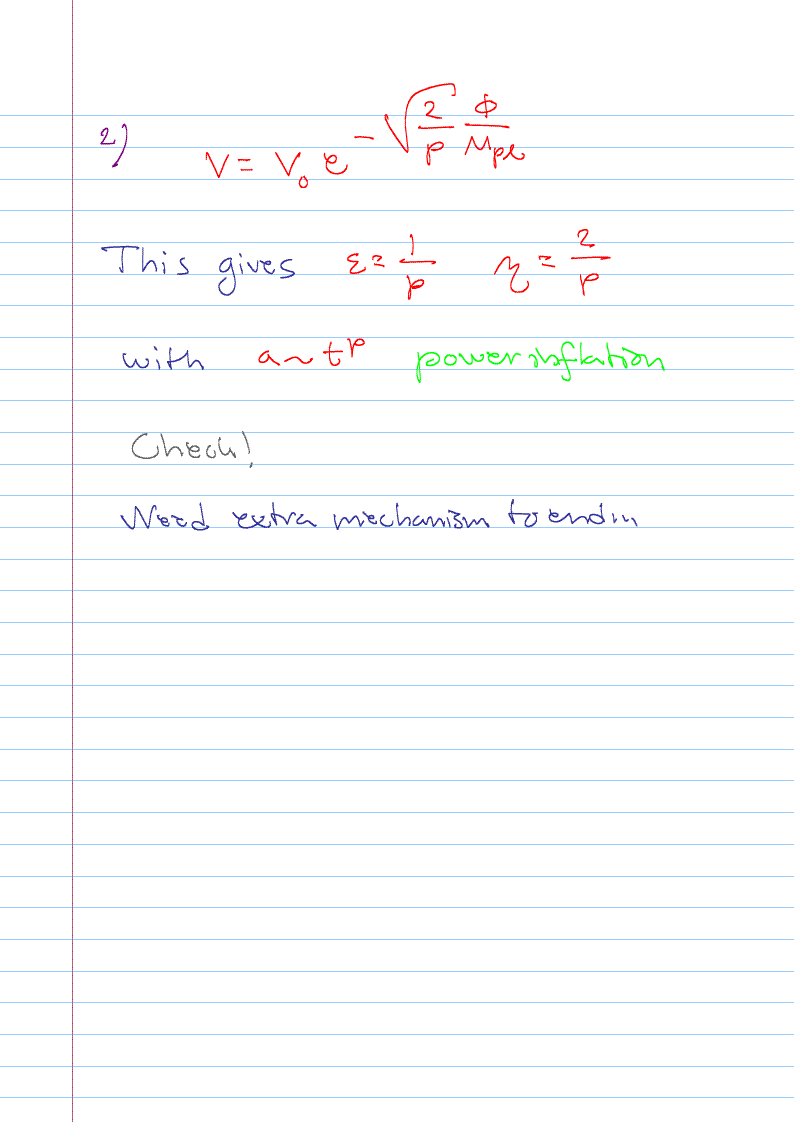 2) V = V₀ e^{-√(2/p) Φ/Mpl}
This gives ε = 1/p η = 2/p
with a ~ t^p power inflation
Check!
Need extra mechanism to end in